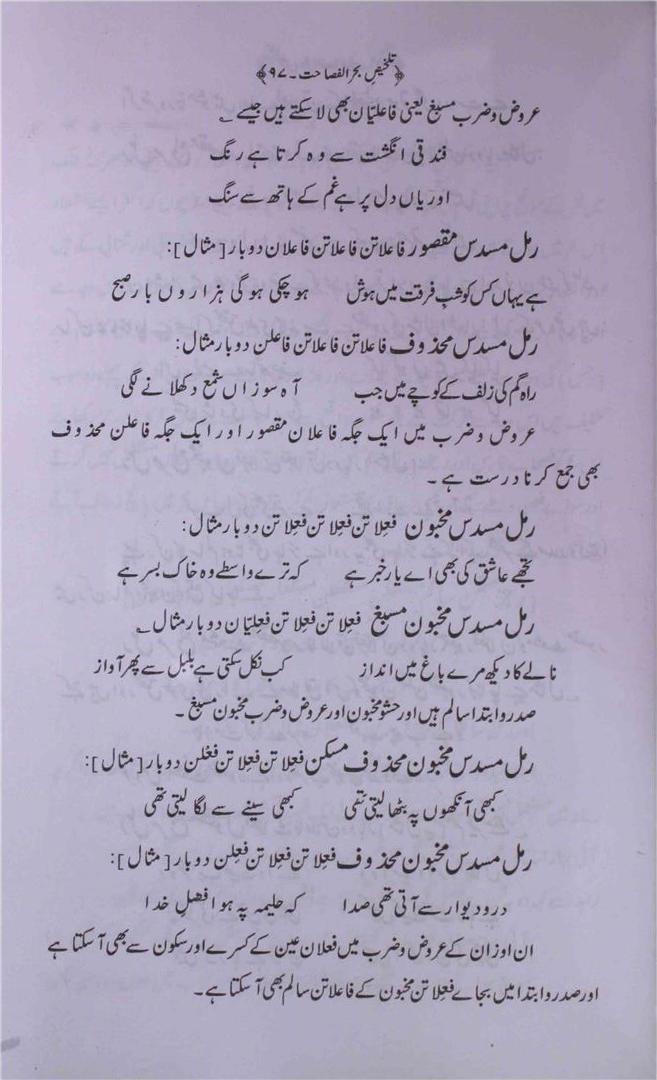 ﴿تلخیص بحر الفصاحت۔۹۷﴾
عروض و ضرب مسبغ یعنی فاعلیّان بھی لا سکتے ہیں جیسے ؂
فندقی انگشت سے وہ کرتا ہے رنگ
اور یاں دل پر ہے غم کے ہاتھ سے سنگ
رمل مسدس مقصور فاعلاتن فاعلاتن فاعلان دوبار [مثال]:
ہے یہاں کس کو شبِ فرقت میں ہوش ہو چکی ہوگی ہزاروں بار صبح
رمل مسدس محذوف فاعلاتن فاعلاتن فاعلن دوبار مثال:
راہ گم کی زلف کے کوچے میں جب آہ سوزاں شمع دکھلانے لگی
عروض و ضرب میں ایک جگہ فاعلان مقصور اور ایک جگہ فاعلن محذوف
بھی جمع کرنا درست ہے۔
رمل مسدس مخبون فعِلاتن فعِلاتن فعِلاتن دوبار مثال:
تجھے عاشق کی بھی اے یار خبر ہے کہ ترے واسطے وہ خاک بسر ہے
رمل مسدس مخبون مسبغ فعِلاتن فعِلاتن فعِلیّان دوبار مثال ؂
نالے کا دیکھ مرے باغ میں انداز کب نکل سکتی ہے بلبل سے پھر آواز
صدر و ابتدا سالم ہیں اور حشو مخبون اور عروض و ضرب مخبون مسبغ۔
رمل مسدس مخبون محذوف مسکن فعِلاتن فعِلاتن فعْلن دوبار [مثال]:
کبھی آنکھوں پہ بٹھا لیتی تھی کبھی سینے سے لگا لیتی تھی
رمل مسدس مخبون محذوف فعِلاتن فعِلاتن فعِلن دوبار [مثال]:
در و دیوار سے آتی تھی صدا کہ حلیمہ پہ ہوا فضلِ خدا
ان اوزان کے عروض و ضرب میں فعلان عین کے کسرے اور سکون سے بھی آ سکتا ہے
اور صدر و ابتدا میں بجائے فعِلاتن مخبون کے فاعلاتن سالم بھی آ سکتا ہے۔